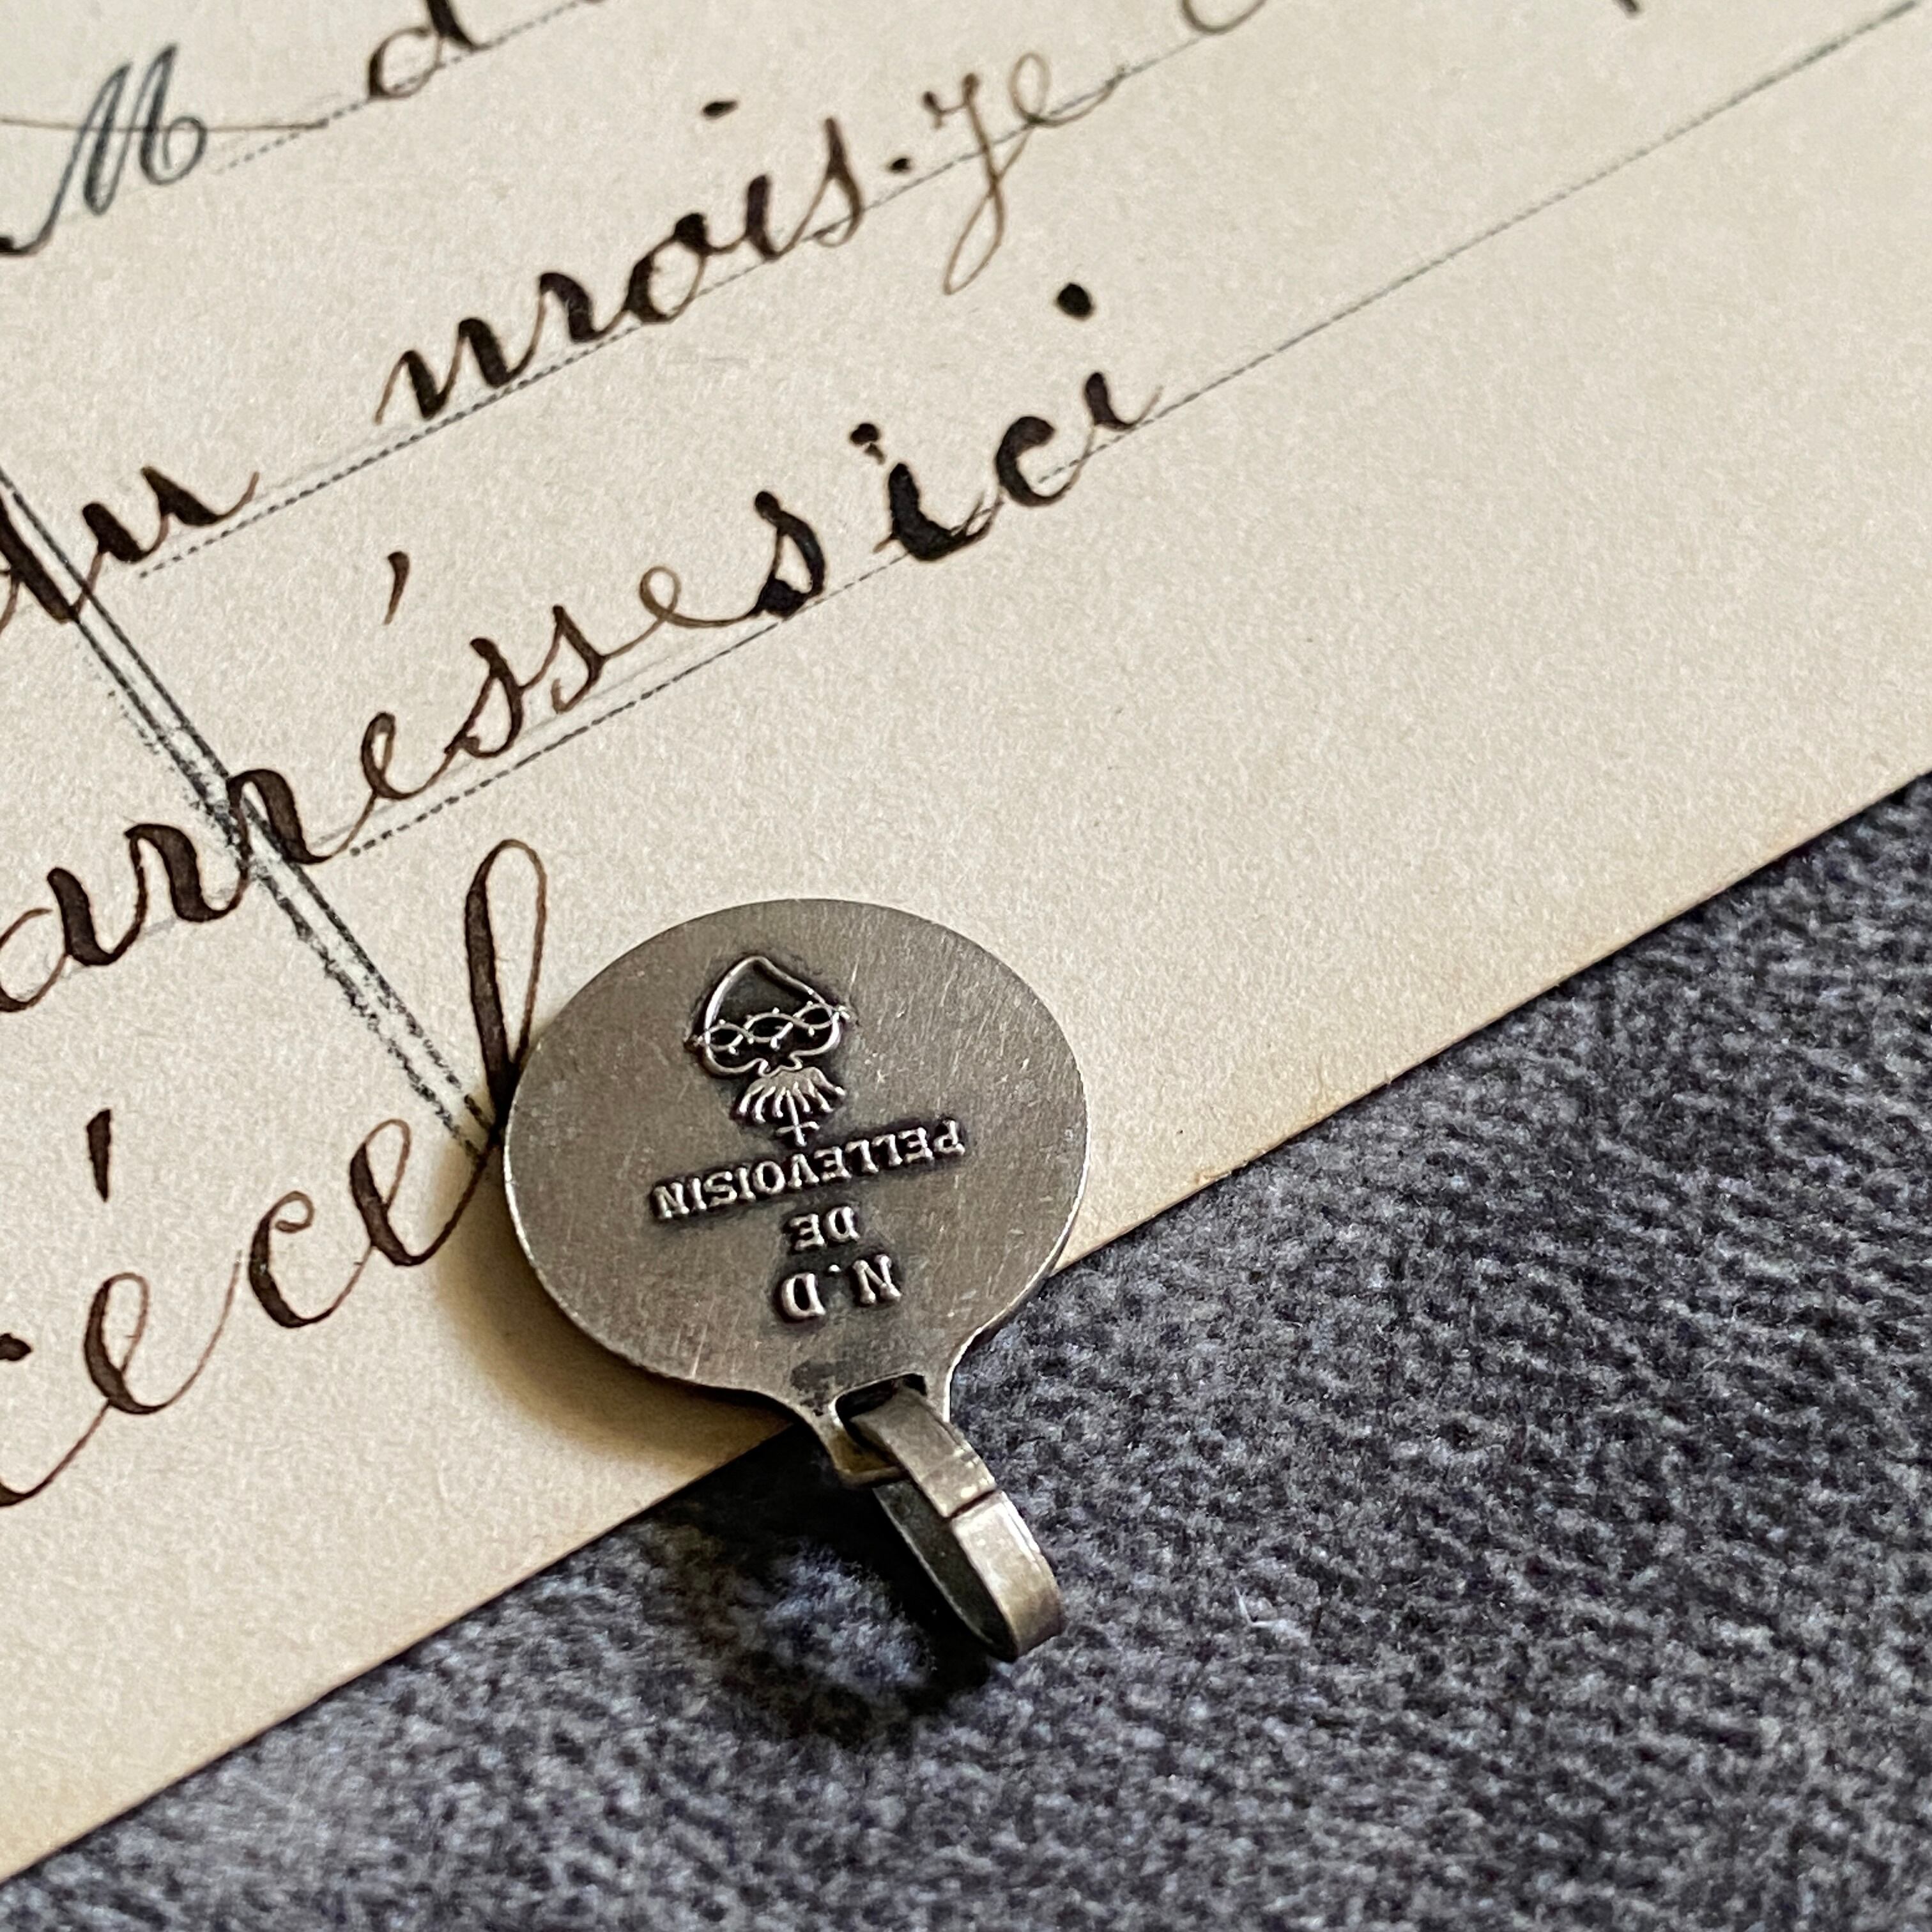 M d
du mois. je
arrésses ici
écel
N.D
DE
PELLEVOISIN